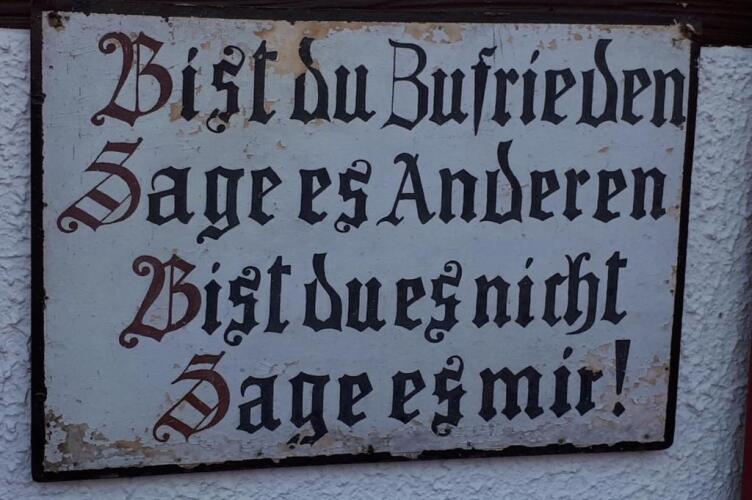 Bist du Zufrieden
Sage es Anderen
Bist du es nicht
Sage es mir!